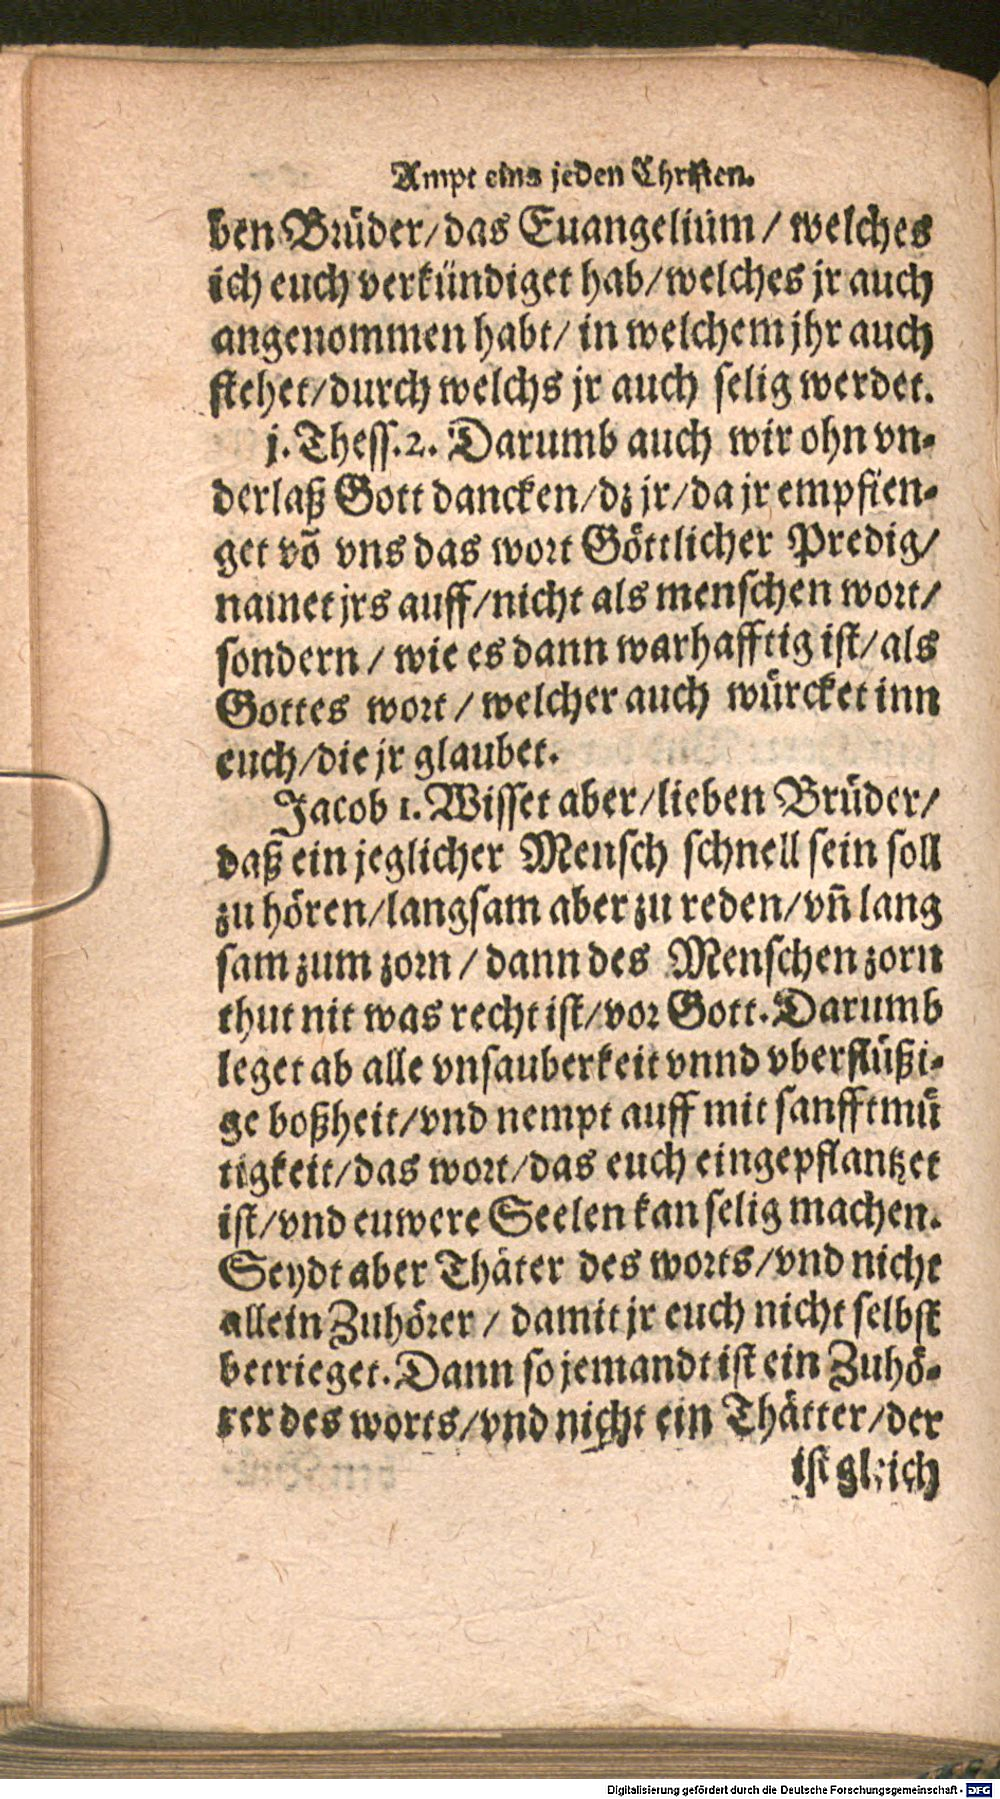 Ampt eins jeden Christen.
ben Brüder/das Euangelium/ welches
ich euch verkündiget hab/welches jr auch
angenommen habt/ in welchem jhr auch
stehet/durch welchs jr auch selig werdet.
j. Thess. 2. Darumb auch wir ohn vn-
derlaß Gott dancken/dz jr/da jr empfien-
get võ vns das wort Göttlicher Predig/
namet jrs auff/nicht als menschen wort/
sondern/ wie es dann warhafftig ist/als
Gottes wort/ welcher auch würcket inn
euch/die jr glaubet.
Jacob 1. Wisset aber/lieben Brüder/
daß ein jeglicher Mensch schnell sein soll
zu hören/langsam aber zu reden/vñ lang
sam zum zorn/ dann des Menschen zorn
thut nit was recht ist/vor Gott. Darumb
leget ab alle vnsauberkeit vnnd vberflüßi-
ge boßheit/vnd nempt auff mit sanfftmü
tigkeit/das wort/das euch eingepflantzet
ist/vnd euwere Seelen kan selig machen.
Seydt aber Thäter des worts/vnd nicht
allein Zuhörer/ damit jr euch nicht selbst
betrieget. Dann so jemandt ist ein Zuhö-
rer des worts/vnd nicht ein Thätter/der
ist gleich
Digitalisierung gefördert durch die Deutsche Forschungsgemeinschaft - DFG